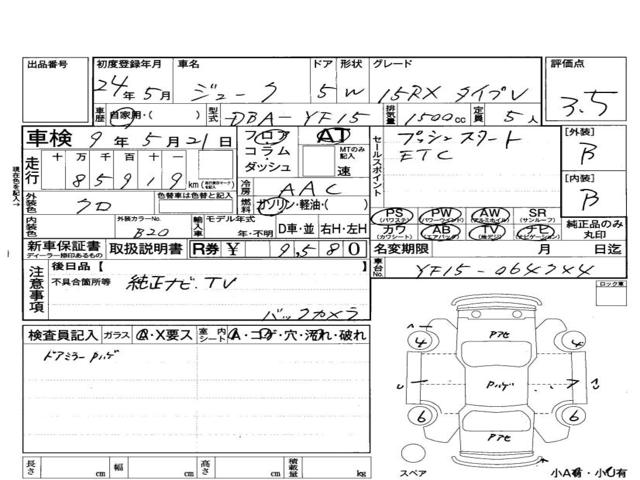 出品番号 初度登録年月 車名 ドア 形状 グレード 評価点
24年5月 ジューク 5 W 15RX タイプV 3.5
車歴 自家用・( ) 型式 DBA-YF15 排気量 1500cc 定員 5人
車検 9年5月21日 フロア AT
コラム・ダッシュ MTのみ記入 速
走行 十 万 千 百 十 一
85919 km
セールスポイント プッシュスタート
ETC
[外装] B
[内装] B
冷房 AAC
外装色 クロ 色替車は色替と記入 燃料 ガソリン・軽油・( )
PS (パワステ) PW (パワーウィンド) AW (アルミホイル) SR (サンルーフ)
カワ (カワシート) AB (エアバック) TV (地デジ) ナビ (ナビゲーション)
純正品のみ丸印
内装色 外装カラーNo. B20 輸入車 モデル年式 年・不明 D車・並 右H・左H
新車保証書 ディーラー捺印あるもの 取扱説明書 R券 ¥ 9,580 名変期限 月 日迄
後日品【 】 車台No. YF15-064744
注意事項 不具合箇所等 純正ナビ.TV
バックカメラ
ロック車
検査員記入 ガラス A・X要ス 室内シート A・コゲ・穴・汚れ・破れ
ドアミラーPハゲ
Pアセ
4 4
Pハゲ
6 6
Pアセ
スペア
小A有・小U有
長さ cm 幅 cm 高さ cm 積載量 kg
現在色を記入→